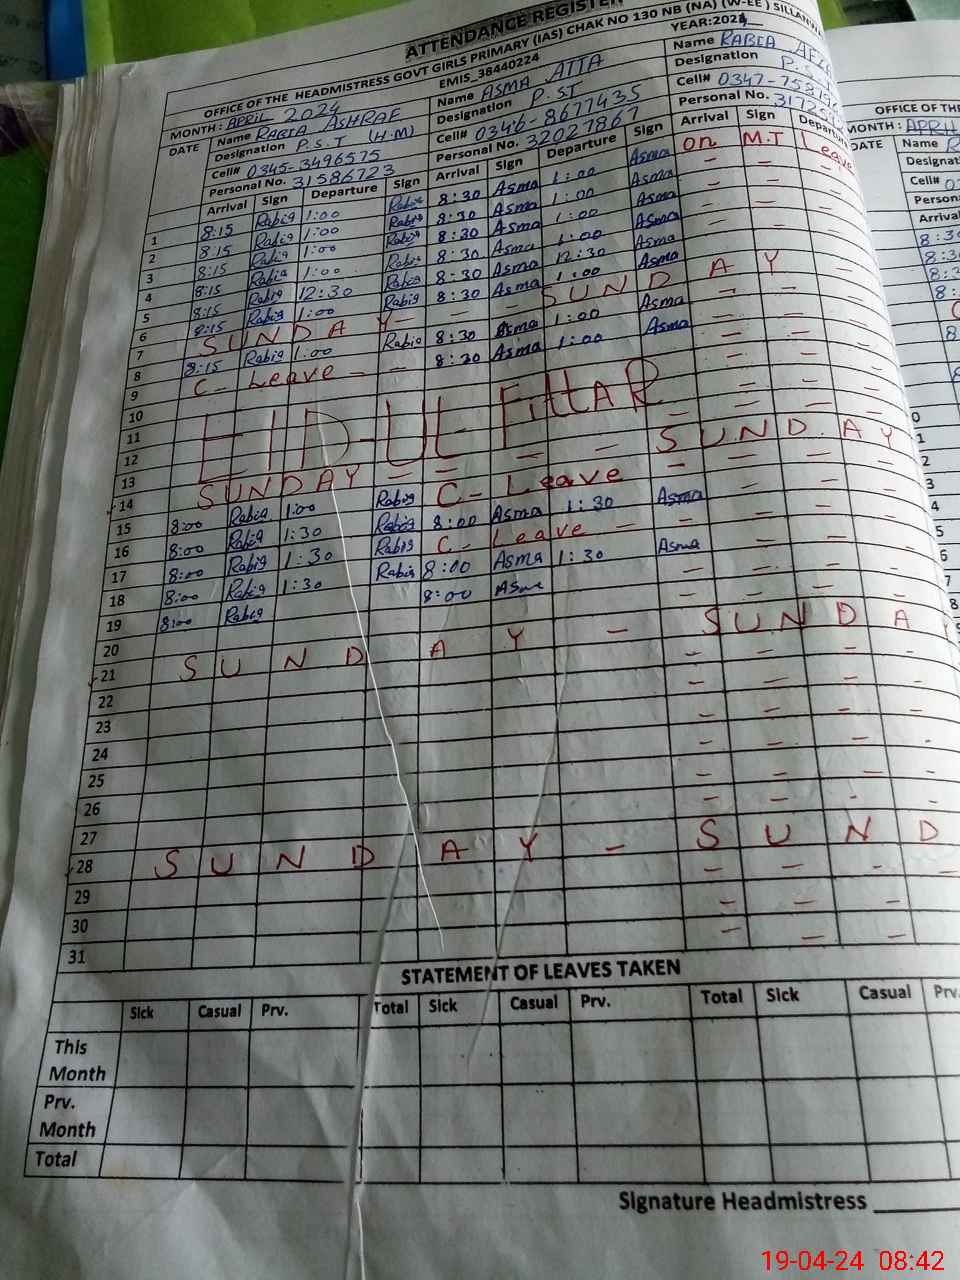 ATTENDANCE REGISTER
OFFICE OF THE HEADMISTRESS GOVT GIRLS PRIMARY (IAS) CHAK NO 130 NB (NA) (W-EE) SILLANWA
EMIS_38440224 YEAR:2024
MONTH: APRIL 2024
DATE Name RABIA ASHRAF Name ASMA ATTA Name RABIA
Designation P.S.T (H.M) Designation P.ST Designation P.S.T
Cell# 0345-3496575 Cell# 0346-8677435 Cell# 0347-758
Personal No. 31586723 Personal No. 32027867 Personal No. 3172
Arrival Sign Departure Sign Arrival Sign Departure Sign Arrival Sign Departure
1 8:15 Rabia 1:00 Rabia 8:30 Asma 1:00 Asma on M.T Leave
2 8:15 Rabia 1:00 Rabia 8:30 Asma 1:00 Asma - -
3 8:15 Rabia 1:00 Rabia 8:30 Asma 1:00 Asma - - -
4 8:15 Rabia 1:00 Rabia 8:30 Asma 1:00 Asma - - -
5 8:15 Rabia 12:30 Rabia 8:30 Asma 12:30 Asma - - -
6 8:15 Rabia 1:00 Rabia 8:30 Asma 1:00 Asma - - -
7 SUNDAY - - - SUNDAY
8 8:15 Rabia 1:00 Rabia 8:30 Asma 1:00 Asma - - -
9 C- Leave - - 8:30 Asma 1:00 Asma - - -
10
11 EID-UL FittAR
12
13
14 SUNDAY - - - - - SUNDAY
15 8:00 Rabia 1:00 Rabia C- Leave - - -
16 8:00 Rabia 1:30 Rabia 8:00 Asma 1:30 Asma - - -
17 8:00 Rabia 1:30 Rabia C- Leave - - - -
18 8:00 Rabia 1:30 Rabia 8:00 Asma 1:30 Asma - - -
19 8:00 Rabia 8:00 Asma - - -
20
21 SUNDAY - SUNDAY
22 - - - -
23 - - - -
24 - - - -
25 - - - -
26 - - - -
27 - - - -
28 SUNDAY - SUND
29 - - - -
30 - - -
31 - - -
STATEMENT OF LEAVES TAKEN
Sick Casual Prv. Total Sick Casual Prv. Total Sick Casual Prv.
This Month
Prv. Month
Total
Signature Headmistress
OFFICE OF THE
MONTH: APRIL
DATE Name
Designati
Cell#
Person
Arrival
8:30
19-04-24 08:42